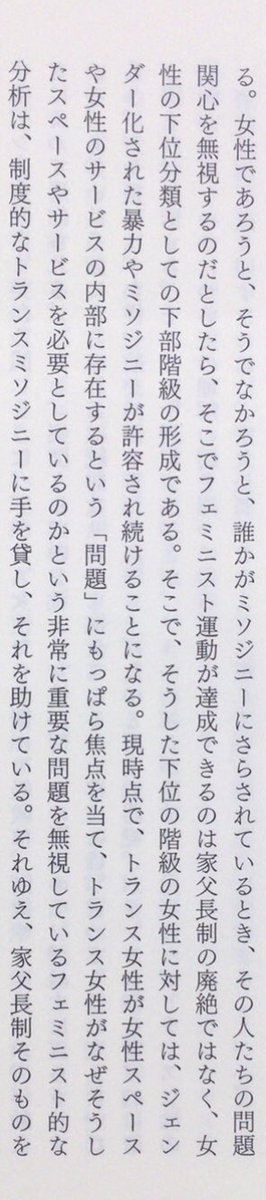 る。女性であろうと、そうでなかろうと、誰かがミソジニーにさらされているとき、その人たちの問題
関心を無視するのだとしたら、そこでフェミニスト運動が達成できるのは家父長制の廃絶ではなく、女
性の下位分類としての下部階級の形成である。そこで、そうした下位の階級の女性に対しては、ジェン
ダー化された暴力やミソジニーが許容され続けることになる。現時点で、トランス女性が女性スペース
や女性のサービスの内部に存在するという「問題」にもっぱら焦点を当て、トランス女性がなぜそうし
たスペースやサービスを必要としているのかという非常に重要な問題を無視しているフェミニスト的な
分析は、制度的なトランスミソジニーに手を貸し、それを助けている。それゆえ、家父長制そのものを